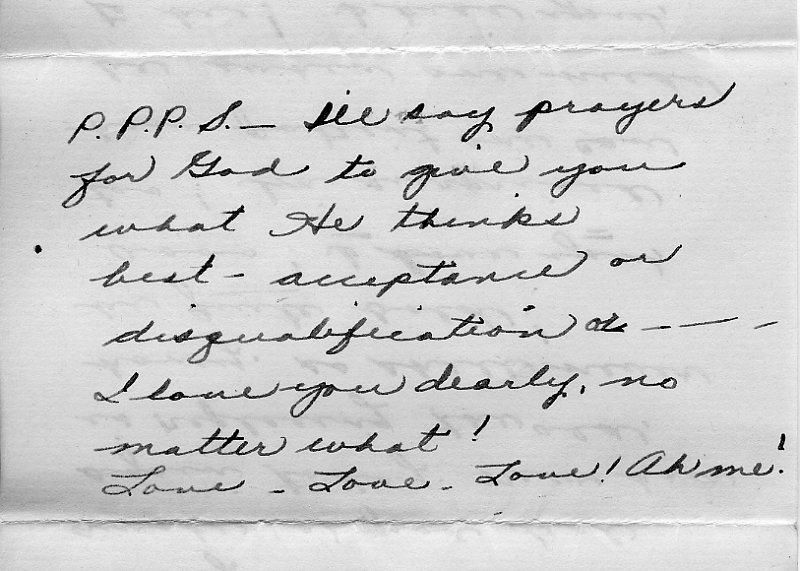 P.P.P.S. — I'll say prayers
for God to give you
what He thinks
best - acceptance or
disqualification — — -
I love you dearly, no
matter what!
Love - Love - Love! Ah me!